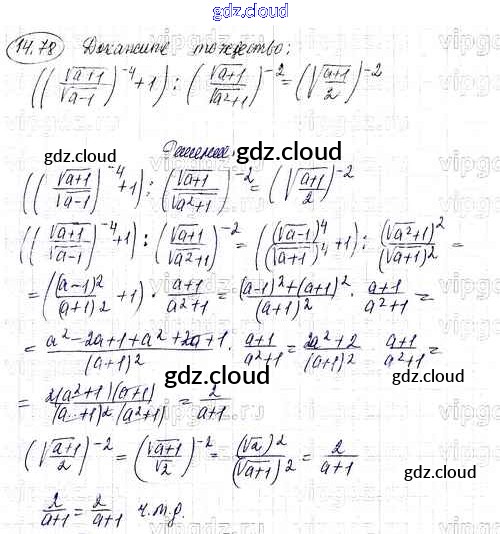 gdz.cloud
14.78 Докажите тождество:
((√(a+1)/√(a-1))^-4 + 1) : (√(a+1)/√(a²+1))^-2 = (√(a+1)/2)^-2
Решение.
gdz.cloud
gdz.cloud
((√(a+1)/√(a-1))^-4 + 1) : (√(a+1)/√(a²+1))^-2 = (√(a+1)/2)^-2
((√(a+1)/√(a-1))^-4 + 1) : (√(a+1)/√(a²+1))^-2 = ((√(a-1))^4/(√(a+1))^4 + 1) : (√(a²+1))^2/(√(a+1))^2 =
= ((a-1)²/(a+1)² + 1) · (a+1)/(a²+1) = ((a-1)²+(a+1)²)/(a+1)² · (a+1)/(a²+1) =
gdz.cloud
gdz.cloud
= (a²-2a+1+a²+2a+1)/(a+1)² · (a+1)/(a²+1) = (2a²+2)/(a+1)² · (a+1)/(a²+1) =
gdz.cloud
= 2(a²+1)(a+1)/((a+1)²(a²+1)) = 2/(a+1)
(√(a+1)/2)^-2 = (√(a+1)/√2)^-2 = (√2)²/(√(a+1))² = 2/(a+1)
gdz.cloud
gdz.cloud
2/(a+1) = 2/(a+1) ч.т.д.